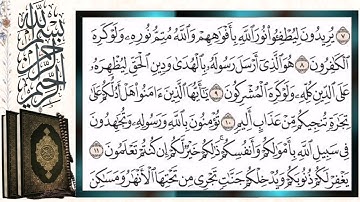 بسم الله الرحمن الرحيم
٧ يُرِيدُونَ لِيُطْفِـُٔوا۟ نُورَ ٱللَّهِ بِأَفْوَٰهِهِمْ وَٱللَّهُ مُتِمُّ نُورِهِۦ وَلَوْ كَرِهَ
ٱلْكَٰفِرُونَ ٨ هُوَ ٱلَّذِىٓ أَرْسَلَ رَسُولَهُۥ بِٱلْهُدَىٰ وَدِينِ ٱلْحَقِّ لِيُظْهِرَهُۥ
عَلَى ٱلدِّينِ كُلِّهِۦ وَلَوْ كَرِهَ ٱلْمُشْرِكُونَ ٩ يَٰٓأَيُّهَا ٱلَّذِينَ ءَامَنُوا۟ هَلْ أَدُلُّكُمْ عَلَىٰ
تِجَٰرَةٍ تُنجِيكُم مِّنْ عَذَابٍ أَلِيمٍ ١٠ تُؤْمِنُونَ بِٱللَّهِ وَرَسُولِهِۦ وَتُجَٰهِدُونَ
فِى سَبِيلِ ٱللَّهِ بِأَمْوَٰلِكُمْ وَأَنفُسِكُمْ ذَٰلِكُمْ خَيْرٌ لَّكُمْ إِن كُنتُمْ تَعْلَمُونَ ١١
يَغْفِرْ لَكُمْ ذُنُوبَكُمْ وَيُدْخِلْكُمْ جَنَّٰتٍ تَجْرِى مِن تَحْتِهَا ٱلْأَنْهَٰرُ وَمَسَٰكِنَ